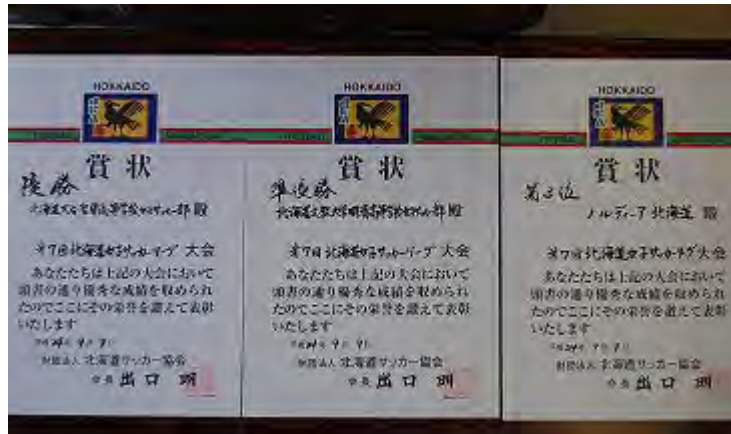 HOKKAIDO
賞状
優勝
北海道大谷室蘭高等学校女子サッカー部 殿
第7回北海道女子サッカーリーグ 大会
あなたたちは上記の大会において
頭書の通り優秀な成績を収められ
たのでここにその栄誉を讃えて表彰
いたします
平成24年9月9日
財団法人 北海道サッカー協会
会長 出口 明
HOKKAIDO
賞状
準優勝
北海道文教大学明清高等学校女子サッカー部 殿
第7回北海道女子サッカーリーグ 大会
あなたたちは上記の大会において
頭書の通り優秀な成績を収められ
たのでここにその栄誉を讃えて表彰
いたします
平成24年9月9日
財団法人 北海道サッカー協会
会長 出口 明
HOKKAIDO
賞状
第3位
ノルディーア北海道 殿
第7回北海道女子サッカーリーグ 大会
あなたたちは上記の大会において
頭書の通り優秀な成績を収められ
たのでここにその栄誉を讃えて表彰
いたします
平成24年9月9日
財団法人 北海道サッカー協会
会長 出口 明